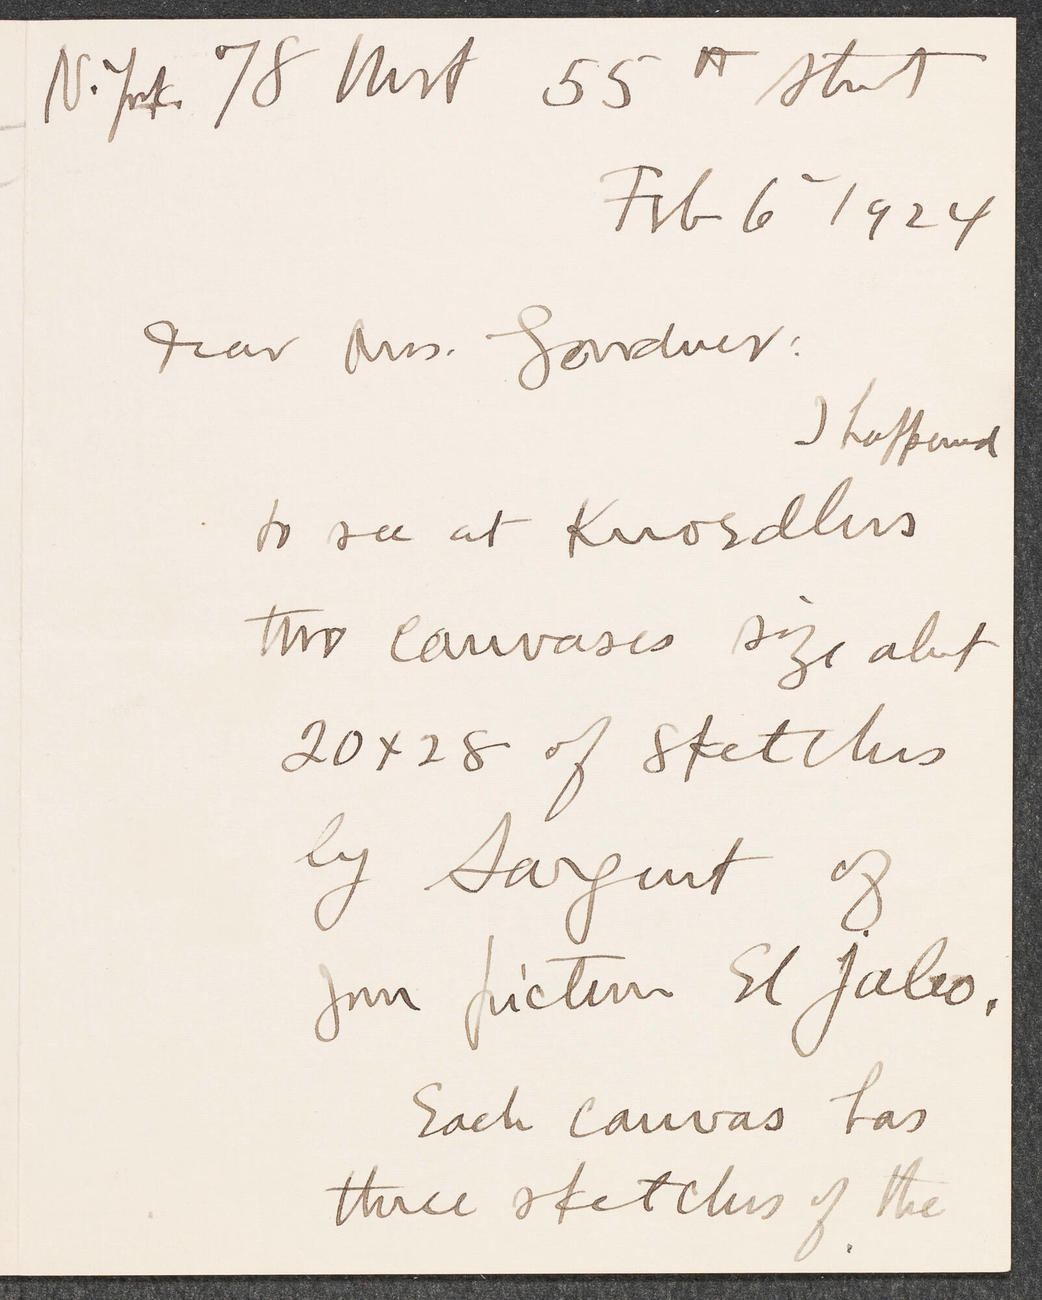 N. York. 78 West 55th Street
Feb 6 - 1924
Dear Mrs. Gardner:
I happened
to see at Knoedlers
two canvases size about
20 x 28 of sketches
by Sargent of
your picture El Jaleo.
Each canvas has
three sketches of the